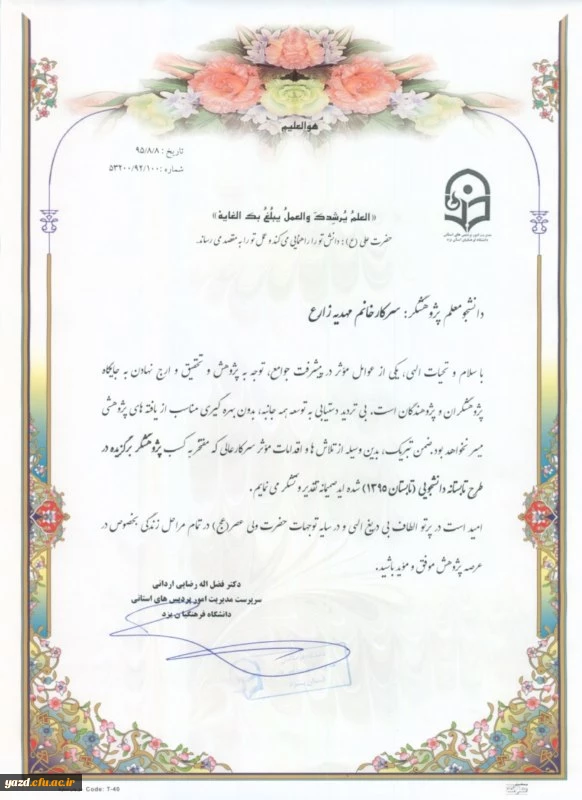 هوالعلیم
تاریخ : ۹۵/۸/۸
شماره : ۵۳۲۰۰/۹۲/۱۰۰
مدیریت امور پردیس های استانی
دانشگاه فرهنگیان استان یزد
«العلمُ یُرشِدُکَ والعملُ یبلُغُ بِکَ الغایة»
حضرت علی (ع) : دانش تو را راهنمایی می کند و عمل تو را به مقصد می رساند.
دانشجو معلم پژوهشگر: سرکار خانم مهدیه زارع
با سلام و تحیات الهی، یکی از عوامل مؤثر در پیشرفت جوامع، توجه به پژوهش و تحقیق و ارج نهادن به جایگاه
پژوهشگران و پژوهندگان است. بی تردید دستیابی به توسعه همه جانبه، بدون بهره گیری مناسب از یافته های پژوهشی
میسر نخواهد بود. ضمن تبریک، بدین وسیله از تلاش ها و اقدامات مؤثر سرکارعالی که مفتخر به کسب پژوهشگر برگزیده در
طرح تابستانه دانشجویی (تابستان ۱۳۹۵) شده اید صمیمانه تقدیر و تشکر می نمایم .
امید است در پرتو الطاف بی دریغ الهی و در سایه توجهات حضرت ولی عصر(عج) در تمام مراحل زندگی بخصوص در
عرصه پژوهش موفق و مؤید باشید.
دکتر فضل اله رضایی اردانی
سرپرست مدیریت امور پردیس های استانی
دانشگاه فرهنگیان یزد
yazd.cfu.ac.ir
Code: 7-40